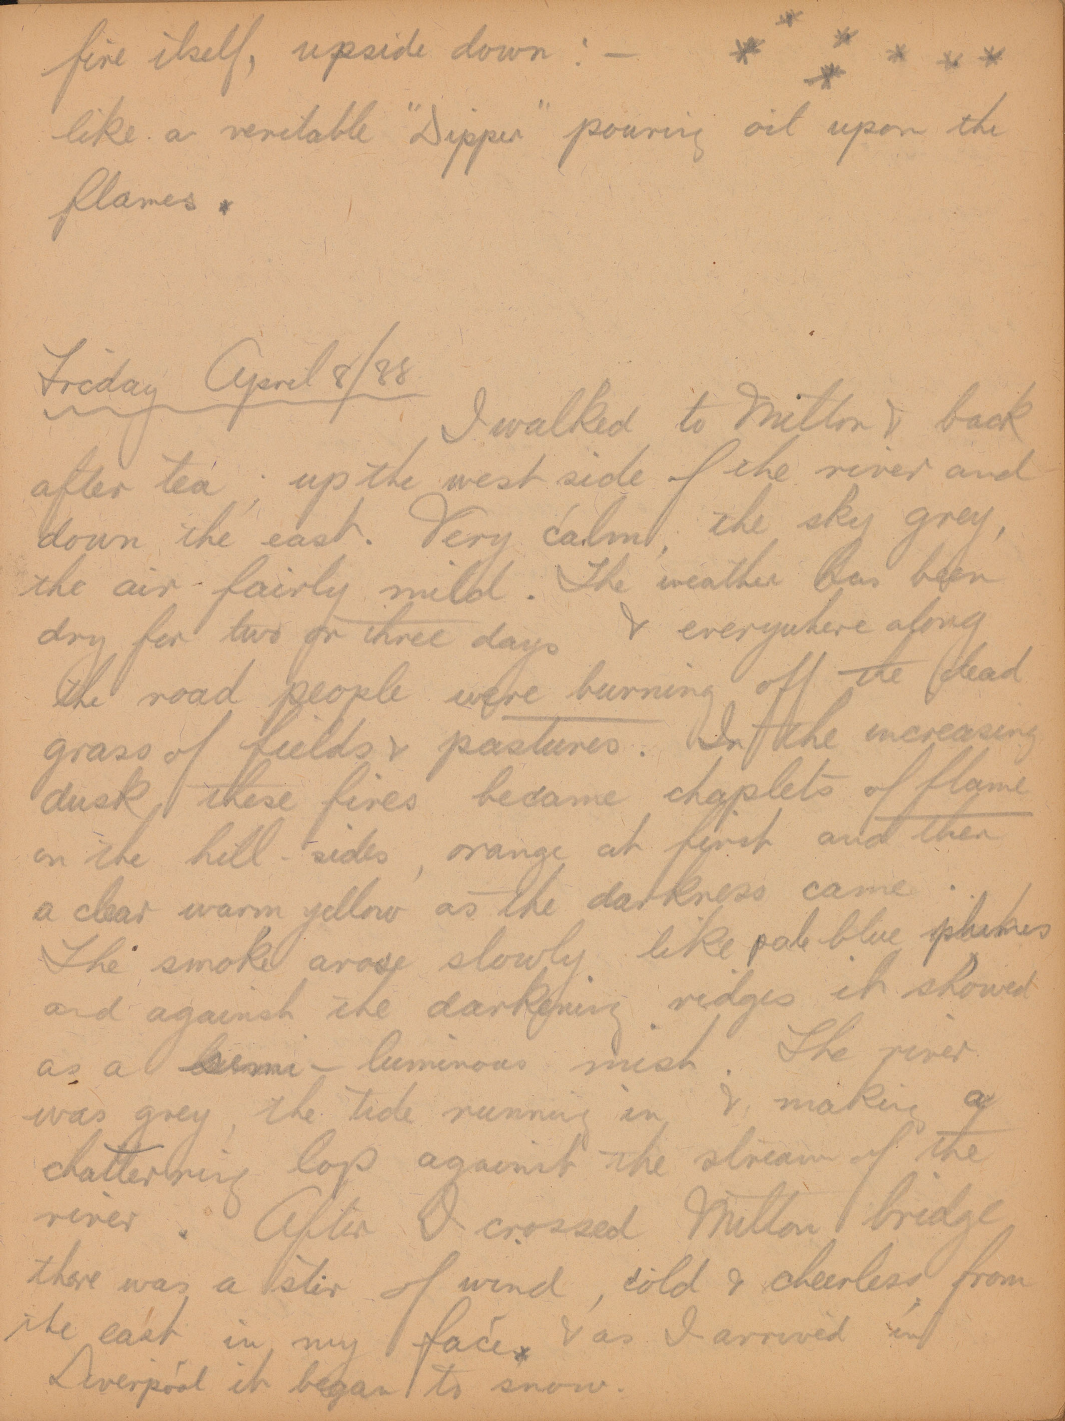 fire itself, upside down : —
like a veritable "Dipper" pouring oil upon the
flames.
Friday April 8/88
I walked to Milton & back
after tea ; up the west side of the river and
down the east. Very calm, the sky grey,
the air fairly mild. The weather has been
dry for two or three days & everywhere along
the road people were burning off the dead
grass of fields & pastures. In the increasing
dusk, these fires became chaplets of flame
on the hill-sides, orange at first and then
a clear warm yellow as the darkness came.
The smoke arose slowly like pale blue plumes
and against the darkening ridges it showed
as a semi-luminous mist. The river
was grey, the tide running in, & making a
chattering lop against the stream of the
river. After I crossed Milton bridge
there was a stir of wind, cold & cheerless, from
the east in my face, & as I arrived in
Liverpool it began to snow.